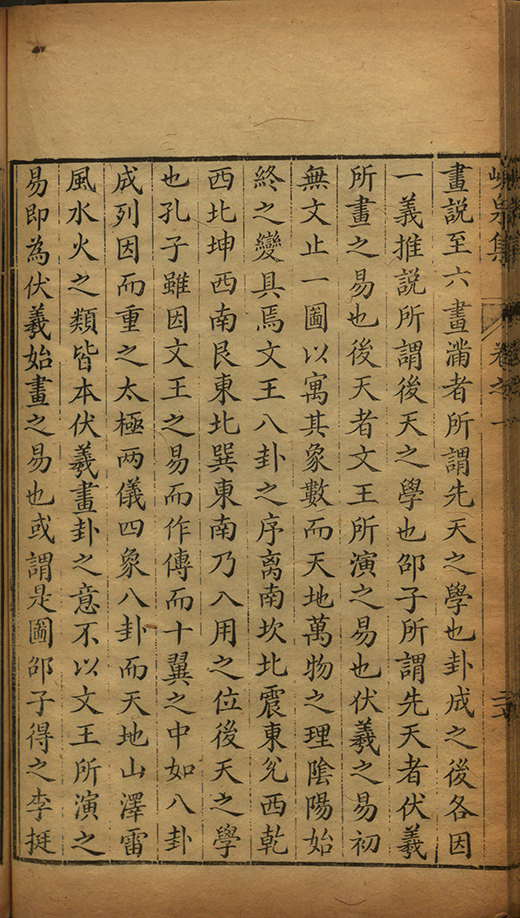 峴泉集 卷之一
畫說至六畫滿者所謂先天之學也卦成之後各因
一義推說所謂後天之學也邵子所謂先天者伏羲
所畫之易也後天者文王所演之易也伏羲之易初
無文止一圖以寓其象數而天地萬物之理陰陽始
終之變具焉文王八卦之序离南坎北震東兌西乾
西北坤西南艮東北巽東南乃入用之位後天之學
也孔子雖因文王之易而作傳而十翼之中如八卦
成列因而重之太極兩儀四象八卦而天地山澤雷
風水火之類皆本伏羲畫卦之意不以文王所演之
易即為伏羲始畫之易也或謂是圖邵子得之李挺